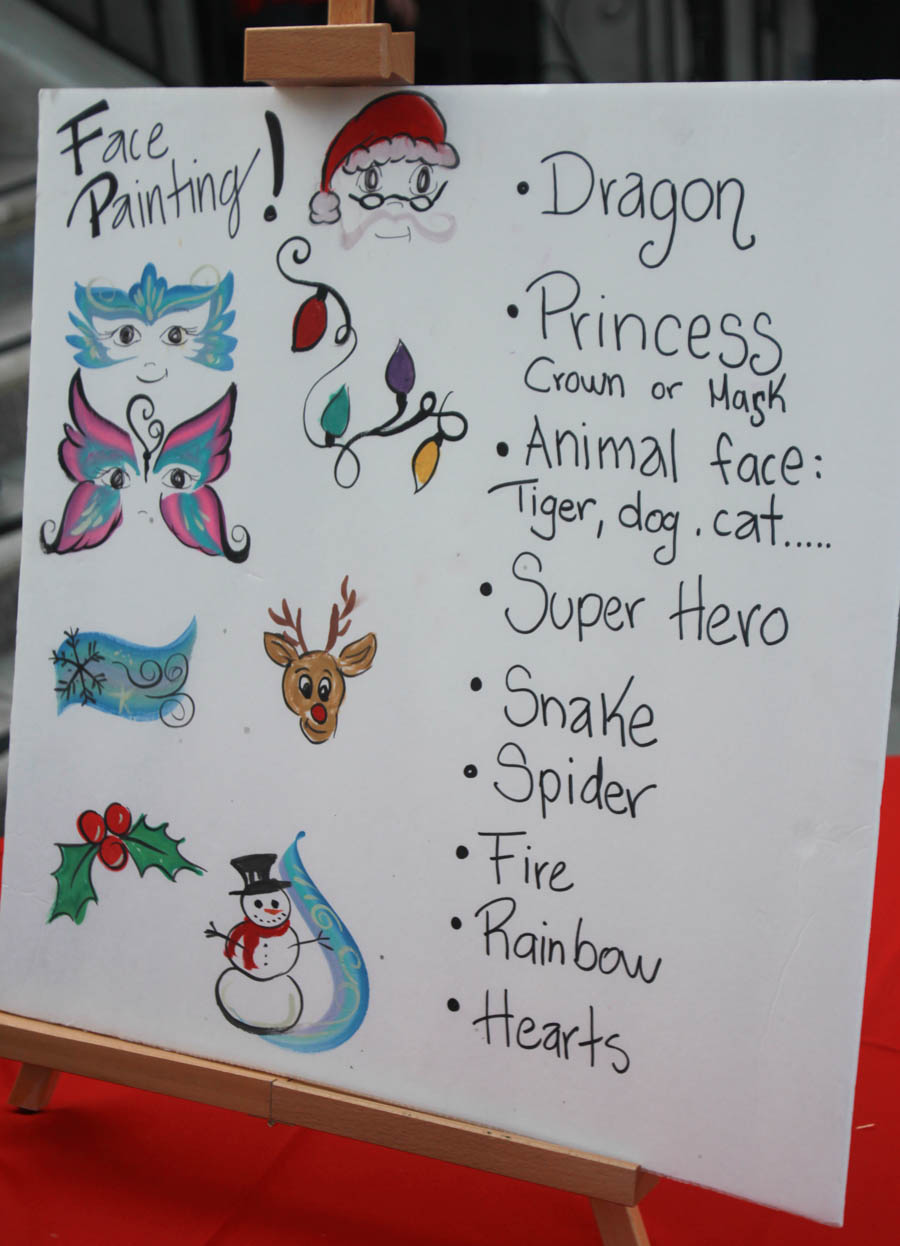 Face
Painting!
• Dragon
• Princess
Crown or Mask
• Animal face:
Tiger, dog. cat.....
• Super Hero
• Snake
• Spider
• Fire
• Rainbow
• Hearts